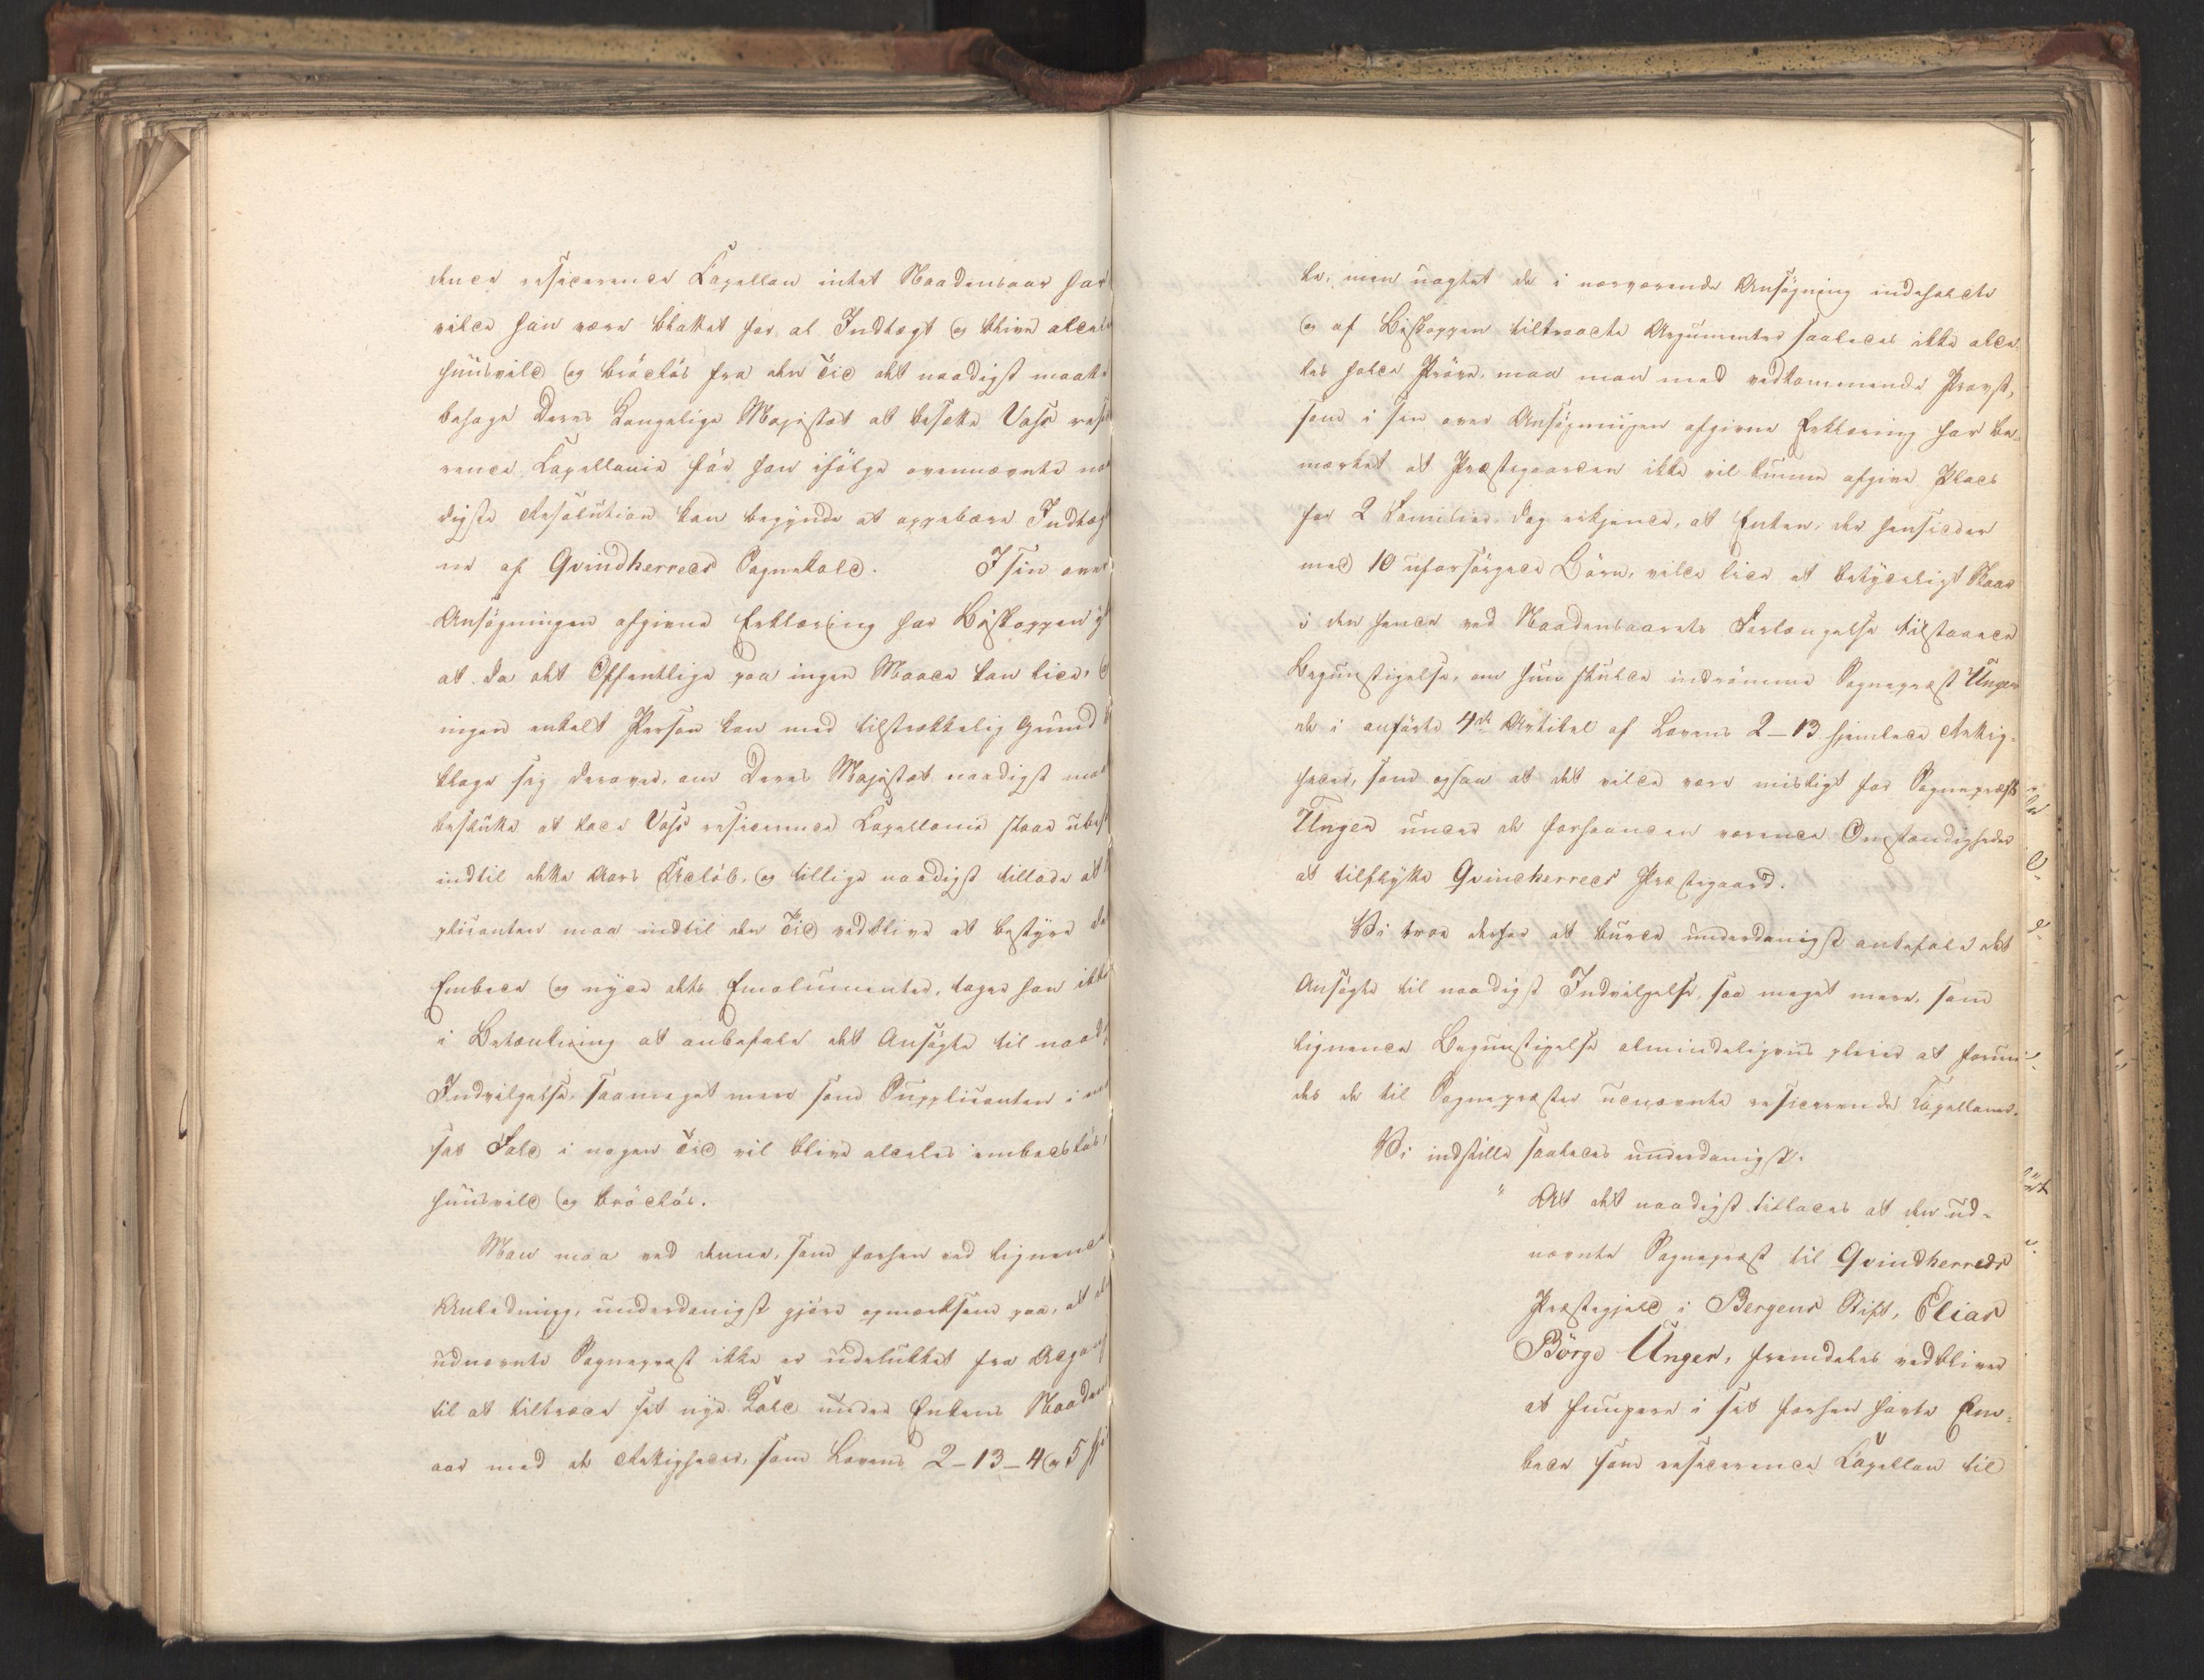 dende residerende Capellan intet Naadensaar har
vilde han være blottet for al Indtægt og blive aldeles
huusvild og brödlös fra den Tid det naadigst maatte
behage Deres Kongelige Majestæt at besætte Voss resi
rende Capellanie för han ifölge ovennævnte naa
digste Resolution kan begynde at oppebære Indtægter
ne af Qvindherreds Sognekald. I sin over
Ansögningen afgivne Erklæring har Biskoppen
at da det Offentlige paa ingen Maade kan lide, og
ingen enkelt Person kan med tilstrækkelig Grund be
klage sig derover, om Deres Majestæt naadigst maatte
beslutte at lade Voss residerende Capellanie staae ubesat
indtil dette Aars Udlöb, og tillige naadigst tillade at
plicanten maa indtil den Tid vedblive at bestyre det
Embede og nyde dets Emolumenter, tager han ikke
i Betænkning at anbefale det Ansögte til naad.
Indvilgelse, saameget mere som Supplicanten i mod
sat Fald i nogen Tid vil blive aldeles embedslös,
huusvild og brödlös.
Man maa ved denne, som forhen ved lignende
Anledning, underdanigst gjöre opmærksom paa, at den
udnævnte Sognepræst ikke er udelukket fra Adgang
til at tiltræde sit nye Kald under Enkens Naadens
aar med de Rettigheder, som Lovens 2-13-4 og 5 hj
le, men uagtet de i nærværende Ansögning indeholdte
og af Biskoppen tiltraadte Argumenter saaledes ikke alde-
les holde Pröve, maa man med vedkommende Provst,
som i sin over Ansögningen afgivne Erklæring har be-
mærket at Præstegaarden ikke vil kunne afgive Plads
for 2 Familier, dog erkjende, at Enken, der hensidder
med 10 uforsörgede Börn, vilde lide et betydeligt Skaar
i den hende ved Naadensaarets Forlængelse tilstaaede
Begunstigelse, om hun skulde indrömme Sognepræst Unger
de i anförte 4de Artikel af Lovens 2-13 hjemlede Rettig-
heder, som ogsaa at det vilde være misligt for Sognepræst
Unger under de forhaanden værende Omstændigheder
at tilflytte Qvindherreds Præstegaard.
Vi troe derfor at burde underdanigst anbefale det
Ansögte til naadigst Indvilgelse, saa meget mere, som
lignende Begunstigelse almindeligviis pleier at forun-
des de til Sognepræster udnævnte residerende Capellaner.
Vi indstille saaledes underdanigst:
" At det naadigst tillades at den ud-
nævnte Sognepræst til Qvindherreds
Præstegjeld i Bergens Stift, Elias
Börge Unger, fremdeles vedbliver
at fungere i sit forhen havte Em-
bede som residerende Capellan til